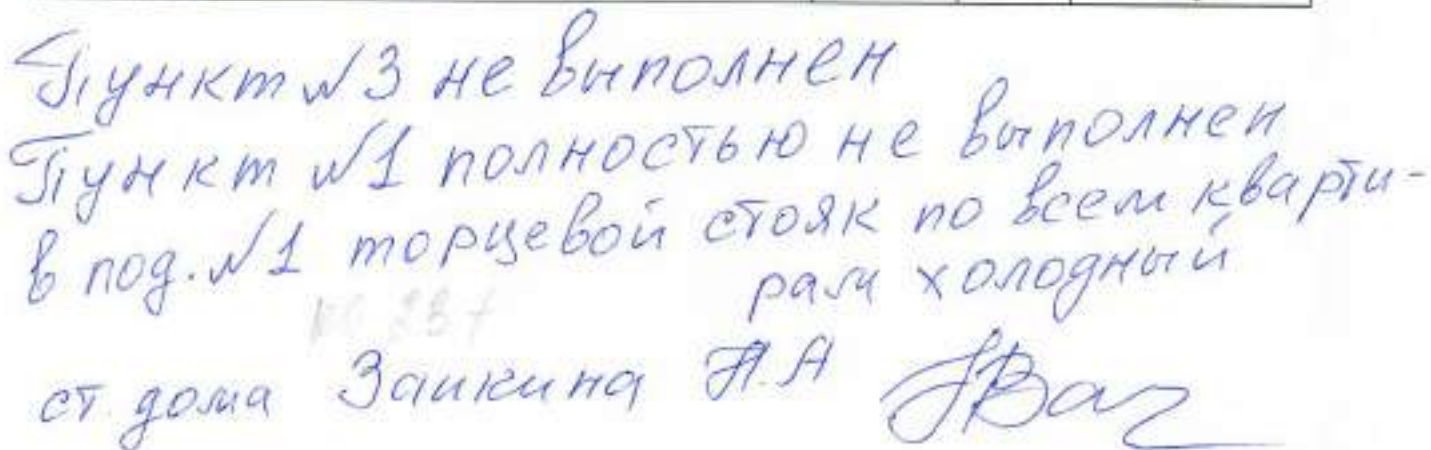 Пункт №3 не выполнен
Пункт №1 полностью не выполнен
в под. №1 торцевой стояк по всем кварти-
рам холодный
ст. дома Заикина Н.А